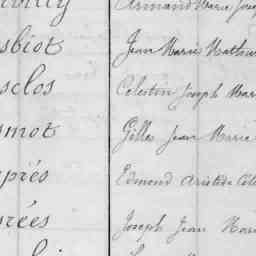 Armand Marie Josep
sbiot Jean Marie Mathur
sclos Celestin Joseph Mar
smot Gilles Jean Marie
sprés Edmond Aristide Céle
rées Joseph Jean Mari